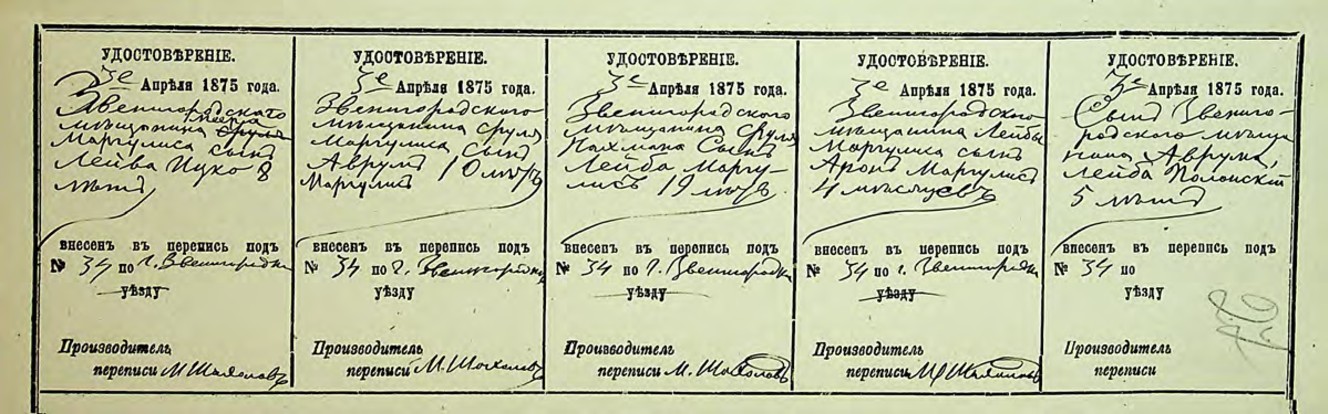 УДОСТОВѢРЕНІЕ.
3е Апрѣля 1875 года.
Звенигородскаго
мѣщанина Сруля Меера
Маргулиса сынъ
Лейба Ицко 8
лѣтъ
внесенъ въ перепись подъ
№ 34 по г. Звенигородкѣ
уѣзду
Производитель
переписи М.
УДОСТОВѢРЕНІЕ.
3е Апрѣля 1875 года.
Звенигородского
мѣщанина Сруля
Маргулиса Сынъ
Аврумъ 10 лѣтъ
Маргулисъ
внесенъ въ перепись подъ
№ 34 по г. Звенигородкѣ
уѣзду
Производитель
переписи М.
УДОСТОВѢРЕНІЕ.
3е Апрѣля 1875 года.
Звенигородского
мѣщанина Сруля
Нахмана Сынъ
Лейба Маргу-
лисъ 19 лѣтъ
внесенъ въ перепись подъ
№ 34 по г. Звенигородкѣ
уѣзду
Производитель
переписи М.
УДОСТОВѢРЕНІЕ.
3е Апрѣля 1875 года.
Звенигородского
мѣщанина Лейбы
Маргулиса сынъ
Аронъ Маргулисъ
4 мѣсяцевъ
внесенъ въ перепись подъ
№ 34 по г. Звенигородкѣ
уѣзду
Производитель
переписи
УДОСТОВѢРЕНІЕ.
3е Апрѣля 1875 года.
Сынъ Звениго-
родского мѣща
нина Аврума,
Лейба Полонскій
5 лѣтъ
внесенъ въ перепись подъ
№ 34 по
уѣзду
Производитель
переписи